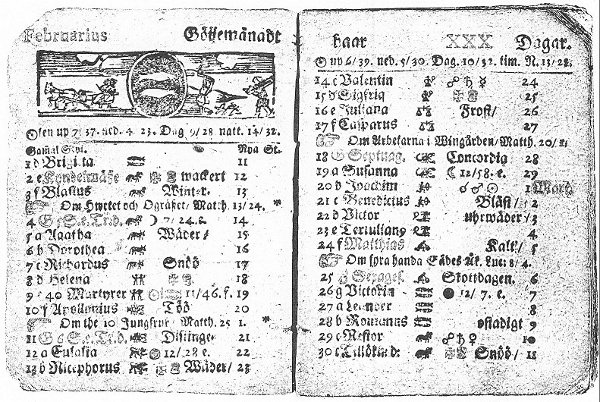 Februarius Göijemånadt
Solen up 7/37. ned. 4 23. Dag 9/28 natt. 14/32.
Gamal Styl. Nya St.
1 d Brigita 11
2 e Kyndelmässe wackert 12
3 f Blasius Winter. 13
Om Hwetet och Ogräset/ Matth. 13/24.
4 G 5 S. e Tr. d. 7/24. e. 14
5 a Agatha Wäder/ 15
6 b Dorothea 16
7 c Richardus Snöö 17
8 d Helena 18
9 e 40 Martyrer 11/46. f. 19
10 f Apollonius Töö 20
Om the 10 Jungfrur Matth. 25 1.
11 G 6 S. e Tr. d. 21
12 a Eulalia 12/28. e. 22
13 b Nicephorus Wäder/ 23
haar XXX Dagar.
up 6/39. ned. 5/30. Dag. 10/32. tim. N. 13/28.
14 c Valentin ☍ ♄ ☿ 24
15 d Sigfrid 25
16 e Juliana Frost/ 26
17 f Casparus 27
Om Arbetarna i Wingården/Matth. 20/
18 G Septuag. Concordia 28
19 a Susanna ☾ 12/58. e. 29
20 b Joachim 1 Mart
21 c Benedictus Bläst/ 2
22 d Victor uhrwäder/ 3
23 e Tertulian 4
24 f Matthias Kalt/ 5
Om fyra handa Sädes Åk. Luc: 8/4.
25 G Sexages. Skottdagen. 6
26 g Victorin ● 12/ 7. e. 7
27 a Leander 8
28 b Romanus ostadigt 9
29 c Nestor ☍ ♄ ☿ 10
30 c Tillökind: Snöö/ 11